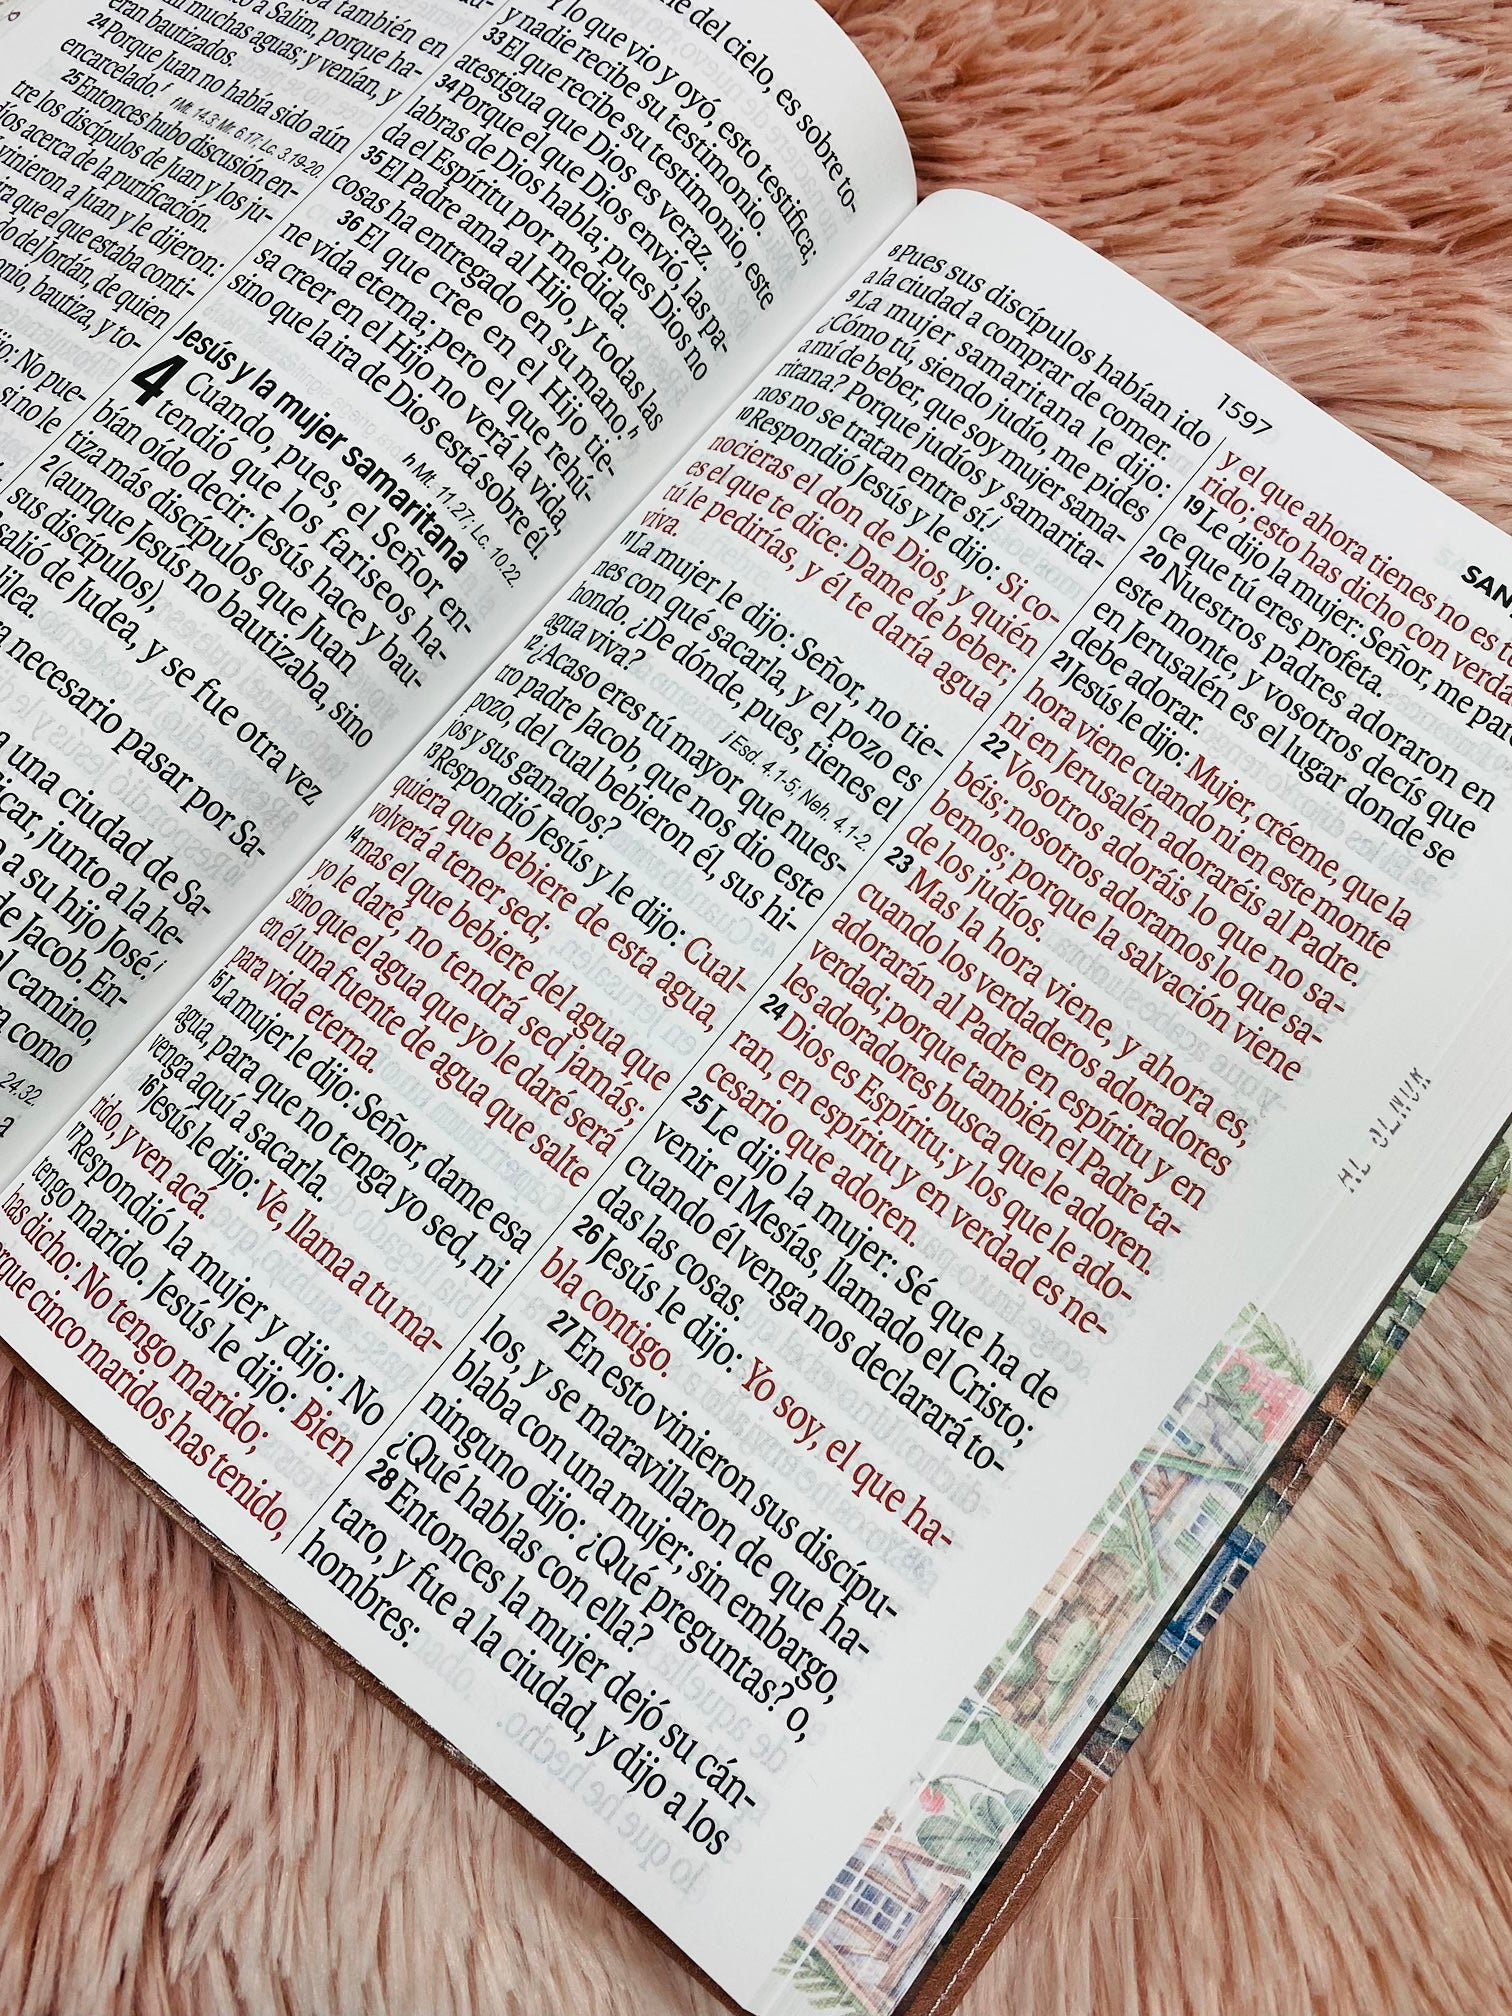 también en
a Salim, porque ha-
muchas aguas; y venían, y
eran bautizados.
24 Porque Juan no había sido aún
encarcelado.f
f Mt. 14.3; Mr. 6.17; Lc. 3.19-20.
25 Entonces hubo discusión en-
tre los discípulos de Juan y los ju-
acerca de la purificación.
vinieron a Juan y le dijeron:
que el que estaba conti-
del Jordán, de quien
bautiza, y to-
No pue-
si no le
del cielo, es sobre to-
Y lo que vio y oyó, esto testifica;
y nadie recibe su testimonio.
33 El que recibe su testimonio, este
atestigua que Dios es veraz.
34 Porque el que Dios envió, las pa-
labras de Dios habla; pues Dios no
da el Espíritu por medida.
35 El Padre ama al Hijo, y todas las
cosas ha entregado en su mano.h
h Mt. 11.27; Lc. 10.22.
36 El que cree en el Hijo tie-
ne vida eterna; pero el que rehú-
sa creer en el Hijo no verá la vida,
sino que la ira de Dios está sobre él.
Jesús y la mujer samaritana
4 Cuando, pues, el Señor en-
tendió que los fariseos ha-
bían oído decir: Jesús hace y bau-
tiza más discípulos que Juan
2 (aunque Jesús no bautizaba, sino
sus discípulos),
salió de Judea, y se fue otra vez
necesario pasar por Sa-
a una ciudad de Sa-
junto a la he-
a su hijo José.i
de Jacob. En-
camino,
como
24.32.
a
1597
SAN
8 Pues sus discípulos habían ido
a la ciudad a comprar de comer.
9 La mujer samaritana le dijo:
¿Cómo tú, siendo judío, me pides
a mí de beber, que soy mujer sama-
ritana? Porque judíos y samarita-
nos no se tratan entre sí.j
j Esd. 4.1-5; Neh. 4.1-2.
10 Respondió Jesús y le dijo: Si co-
nocieras el don de Dios, y quién
es el que te dice: Dame de beber;
tú le pedirías, y él te daría agua
viva.
11 La mujer le dijo: Señor, no tie-
nes con qué sacarla, y el pozo es
hondo. ¿De dónde, pues, tienes el
agua viva?
12 ¿Acaso eres tú mayor que nues-
tro padre Jacob, que nos dio este
pozo, del cual bebieron él, sus hi-
jos y sus ganados?
13 Respondió Jesús y le dijo: Cual-
quiera que bebiere de esta agua,
volverá a tener sed;
14 mas el que bebiere del agua que
yo le daré, no tendrá sed jamás;
sino que el agua que yo le daré será
en él una fuente de agua que salte
para vida eterna.
15 La mujer le dijo: Señor, dame esa
agua, para que no tenga yo sed, ni
venga aquí a sacarla.
16 Jesús le dijo: Ve, llama a tu ma-
rido, y ven acá.
17 Respondió la mujer y dijo: No
tengo marido. Jesús le dijo: Bien
has dicho: No tengo marido;
cinco maridos has tenido,
y el que ahora tienes no es tu
rido; esto has dicho con verda
19 Le dijo la mujer: Señor, me pare
ce que tú eres profeta.
20 Nuestros padres adoraron en
este monte, y vosotros decís que
en Jerusalén es el lugar donde se
debe adorar.
21 Jesús le dijo: Mujer, créeme, que la
hora viene cuando ni en este monte
ni en Jerusalén adoraréis al Padre.
22 Vosotros adoráis lo que no sa-
béis; nosotros adoramos lo que sa-
bemos; porque la salvación viene
de los judíos.
23 Mas la hora viene, y ahora es,
cuando los verdaderos adoradores
adorarán al Padre en espíritu y en
verdad; porque también el Padre ta-
les adoradores busca que le adoren.
24 Dios es Espíritu; y los que le ado-
ran, en espíritu y en verdad es ne-
cesario que adoren.
25 Le dijo la mujer: Sé que ha de
venir el Mesías, llamado el Cristo;
cuando él venga nos declarará to-
das las cosas.
26 Jesús le dijo: Yo soy, el que ha-
bla contigo.
27 En esto vinieron sus discípu-
los, y se maravillaron de que ha-
blaba con una mujer; sin embargo,
ninguno dijo: ¿Qué preguntas? o,
¿Qué hablas con ella?
28 Entonces la mujer dejó su cán-
taro, y fue a la ciudad, y dijo a los
hombres: